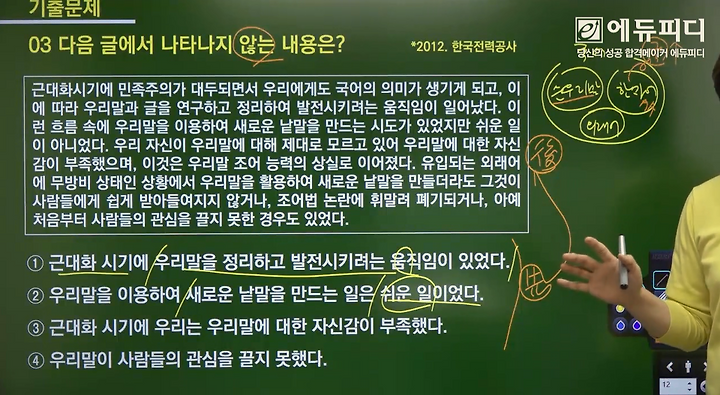 기출문제
에듀피디
당신의 성공 합격메이커 에듀피디
03 다음 글에서 나타나지 않는 내용은?
*2012. 한국전력공사
순우리말
한자어
외래어
근대화시기에 민족주의가 대두되면서 우리에게도 국어의 의미가 생기게 되고, 이
에 따라 우리말과 글을 연구하고 정리하여 발전시키려는 움직임이 일어났다. 이
런 흐름 속에 우리말을 이용하여 새로운 낱말을 만드는 시도가 있었지만 쉬운 일
이 아니었다. 우리 자신이 우리말에 대해 제대로 모르고 있어 우리말에 대한 자신
감이 부족했으며, 이것은 우리말 조어 능력의 상실로 이어졌다. 유입되는 외래어
에 무방비 상태인 상황에서 우리말을 활용하여 새로운 낱말을 만들더라도 그것이
사람들에게 쉽게 받아들여지지 않거나, 조어법 논란에 휘말려 폐기되거나, 아예
처음부터 사람들의 관심을 끌지 못한 경우도 있었다.
後
① 근대화 시기에 우리말을 정리하고 발전시키려는 움직임이 있었다.
② 우리말을 이용하여 새로운 낱말을 만드는 일은 쉬운 일이었다.
③ 근대화 시기에 우리는 우리말에 대한 자신감이 부족했다.
④ 우리말이 사람들의 관심을 끌지 못했다.
12